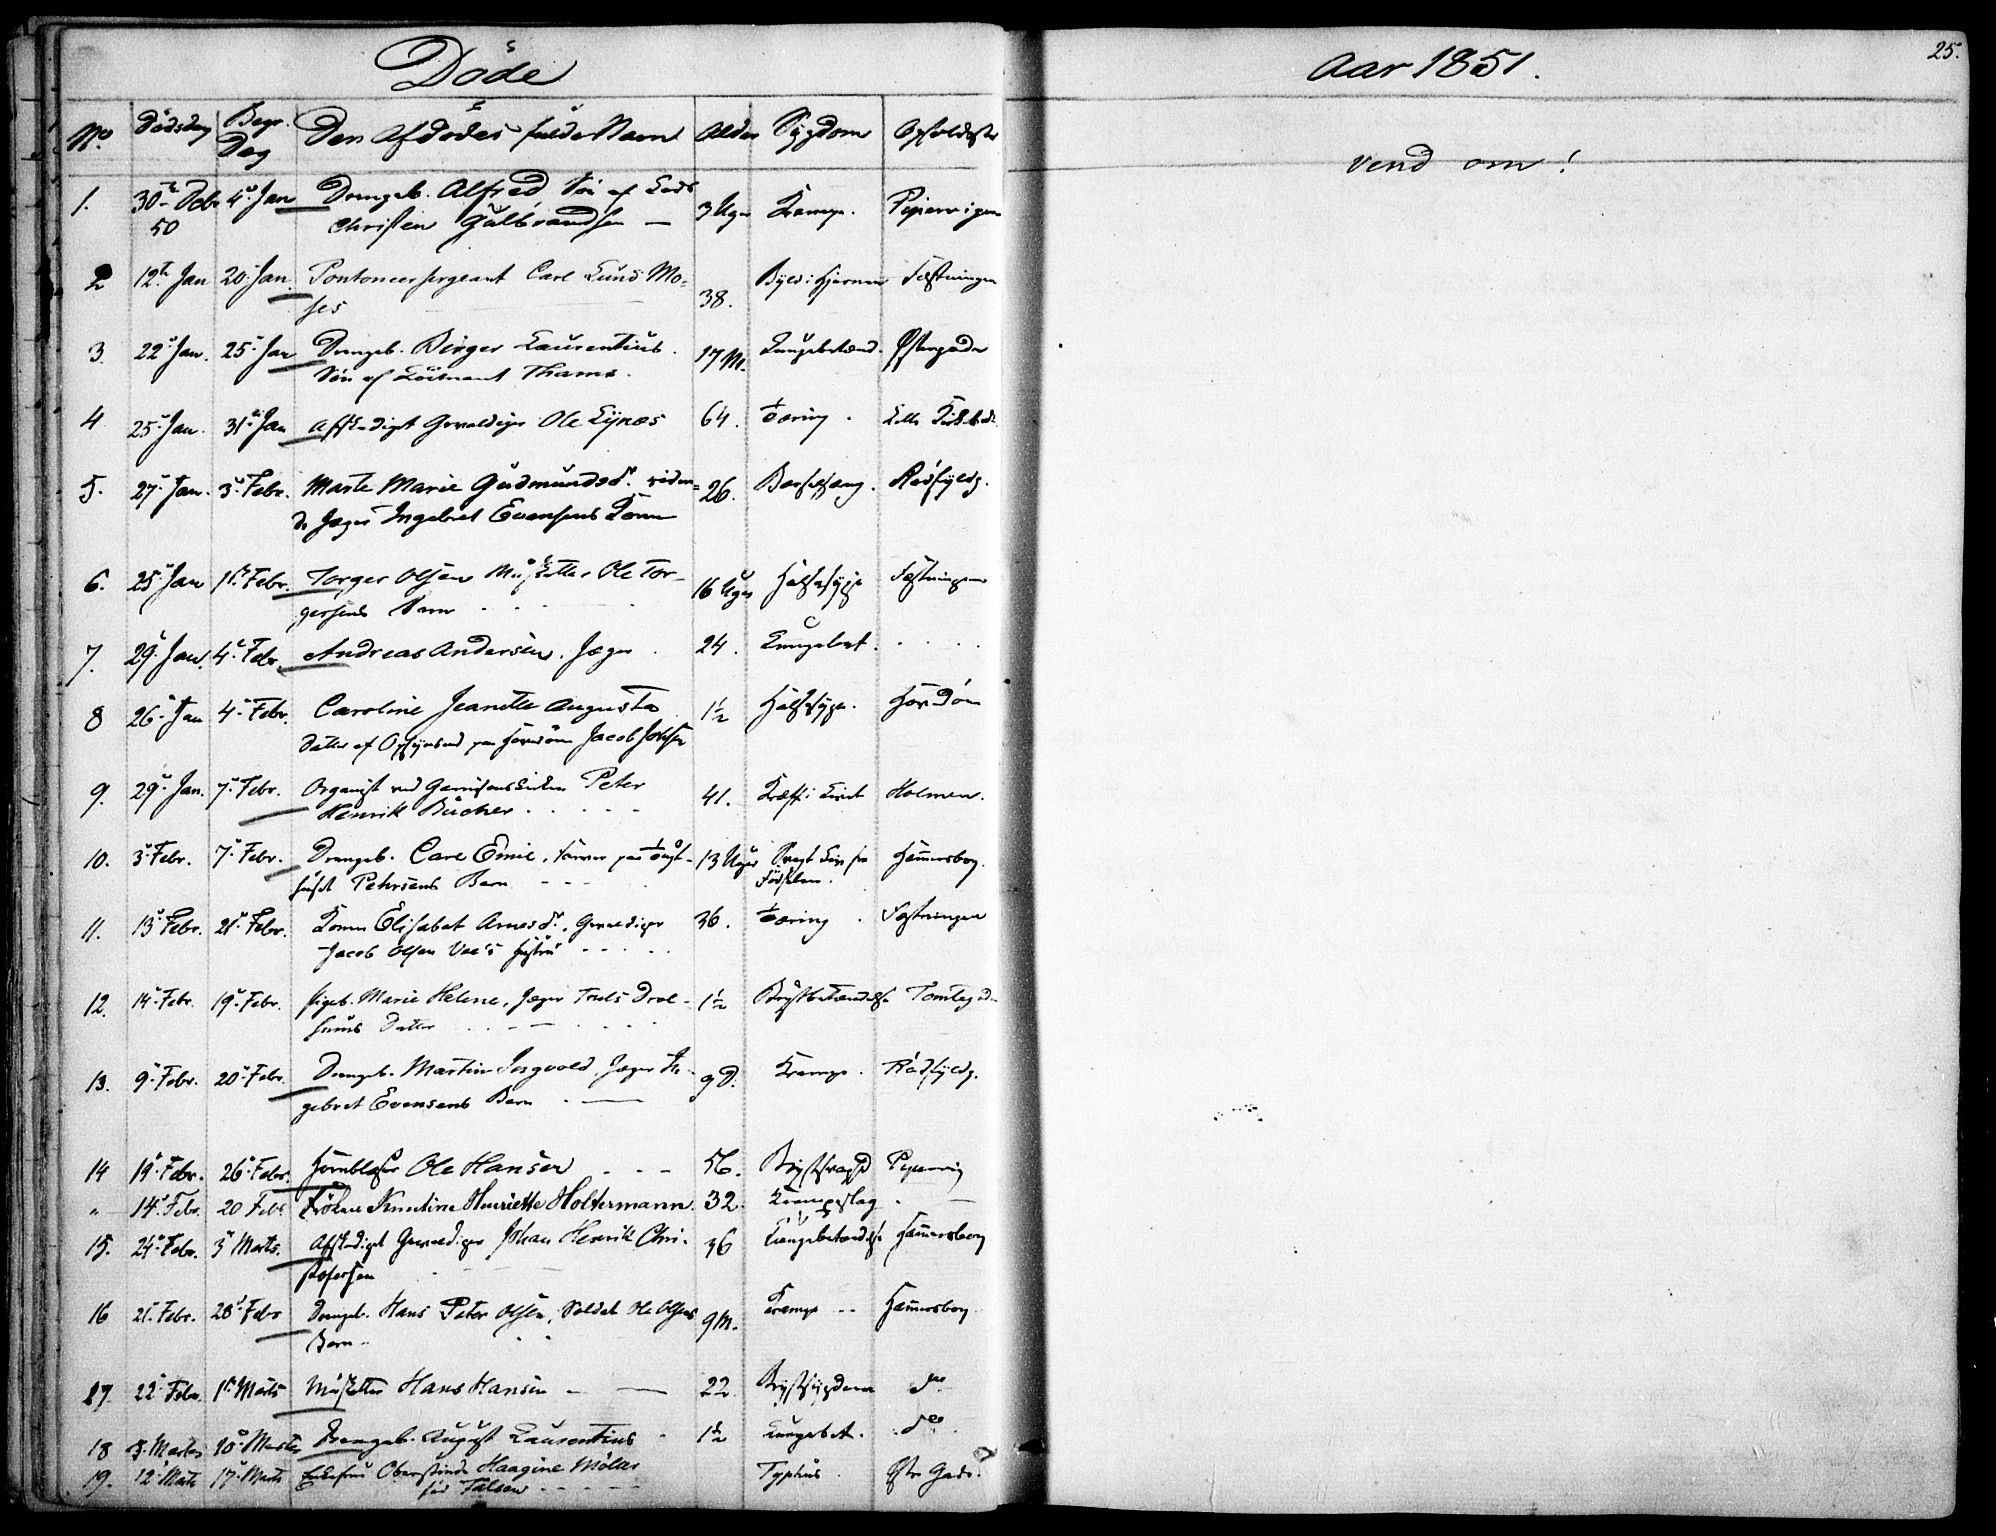 Døde
Aar 1851.
25.
No Dødsdag Begr. Dag Den Afdødes fulde Navn Alder Sygdom Opholdsste
vend om!
1. 30te Debr 50 4de Jan Drengeb. Alfred Søn af
Christen Gulbrandsen — 3 Uger Krampe. Pipervigen
2 12te Jan 20. Jan. Pontoneersergeant Carl Lund Mo=
ses 38. Byld i Hjernen Fæstningen
3. 22de Jan. 25. Jan Drengeb. Birger Laurentius.
Søn af Løitnant Thams. 17 M. Lungebetænd. Østergade
4 25. Jan. 31te Jan Afskediget Gevaldiger Ole Lynæs 64. Tæring.
5. 27. Jan. 3die Febr. Marte Marie Gudmundsdr.
Jæger Ingebret Evensens Kone 26. Barselseng. Rødfyldg.
6. 25. Jan 1ste Febr. Torger Olsen Musketter Ole Tor-
gersens Barn 16 Uger Halssyge Fæstningen
7. 29. Jan. 4. Febr. Andreas Andersen. Jæger 24. Lungebet.
8 26. Jan 4. Febr. Caroline Jeanette Augusta
Datter af Opsynsmd paa Hovedøen Jacob 1½ Halssyge. Hovedøen
9. 29. Jan. 7. Febr. Organist ved Garnisonskirken Peter
Henrik Bücher 41. Kræft i Livet Holmen.
10. 3. Febr. 7. Febr. Drengeb. Carl Emil, paa Tugt-
huset Pehrsens Barn 13 Uger Svagt Liv fra Fødselen. Hammersborg.
11. 13. Febr. 21. Febr. Konen Elisabet Arnesdr. Gevaldiger
Jacob Olsen Hustru 36. Tæring. Fæstningen
12. 14. Febr. 19. Febr. Pigeb. Marie Helene, Jæger Truls
Datter 1½ Brystbetændelse Tomtegd
13. 9. Febr. 20. Febr. Drengeb. Martin Ingvold, Jæger In-
gebret Evensens Barn 9 D. Krampe. Rødfyldg.
14 19. Febr. 26. Febr. Hornblæser Ole Hansen 56. Brystsvagd Pipervig
" 14. Febr. 20 Febr Frøken Knutine Henriette Holtermann. 32. Krampeslag
15. 24. Febr. 3. Marts. Afskediget Gevaldiger Johan Henrik Chri-
stofersen 36 Lungebetændelse Hammersborg
16 21. Febr. 28. Febr Drengeb. Hans Peter Olsen, Soldat Ole Olsens
Barn 9 M. Krampe Hammersborg
17. 22. Febr. 1ste Marts Musketter Hans Hansen 22 Brystsygdom do
18 3. Marts 10. Marts Drengeb. August Laurentius 1½ Lungebet. do.
19. 12. Marts 17. Marts Enkefrue Oberstinde Haagine Møller
født Falsen Typhus. Østre Gade.